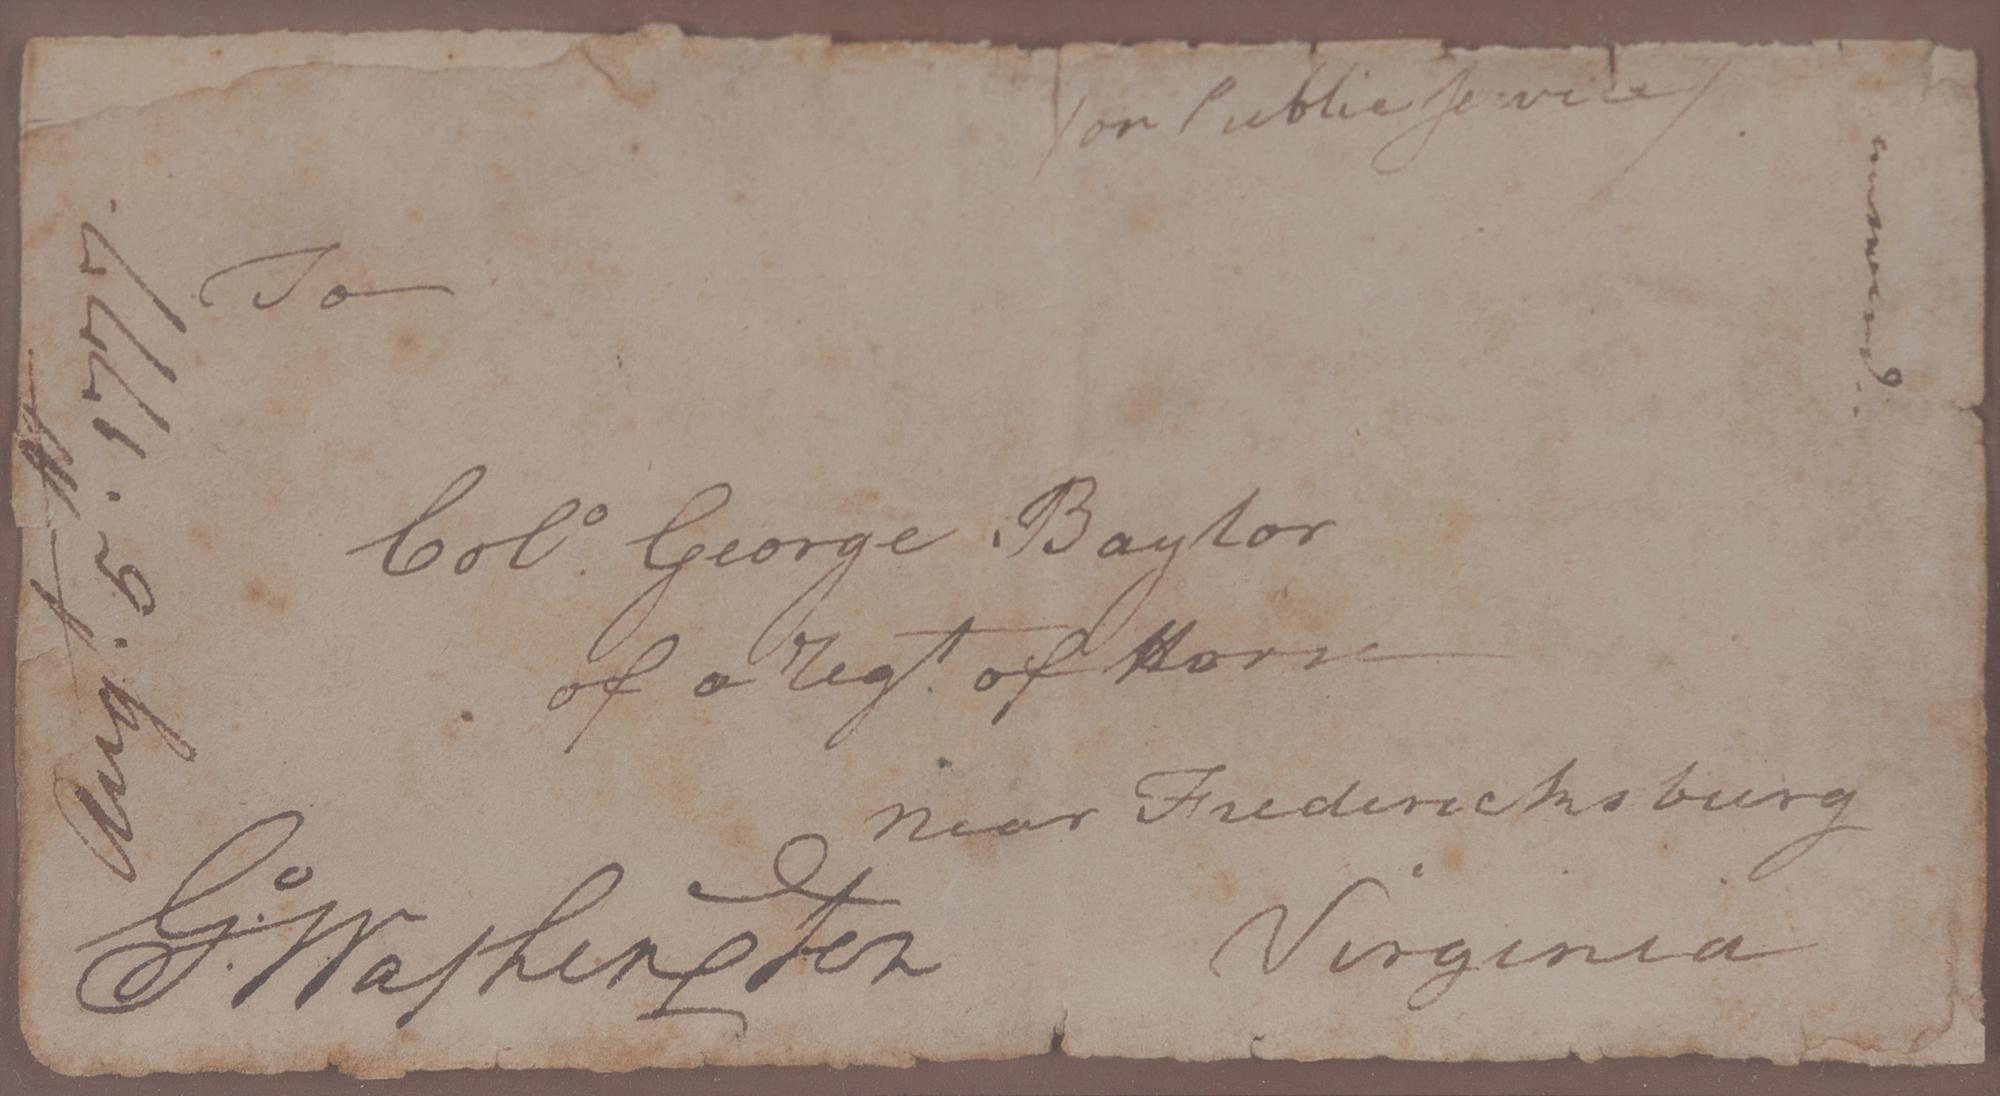 (on Public Service)
answered.
Augt. 5th. 1777.
To
Colo. George Baylor
of a Regt. of Horse
near Fredericksburg
Virginia
Go. Washington